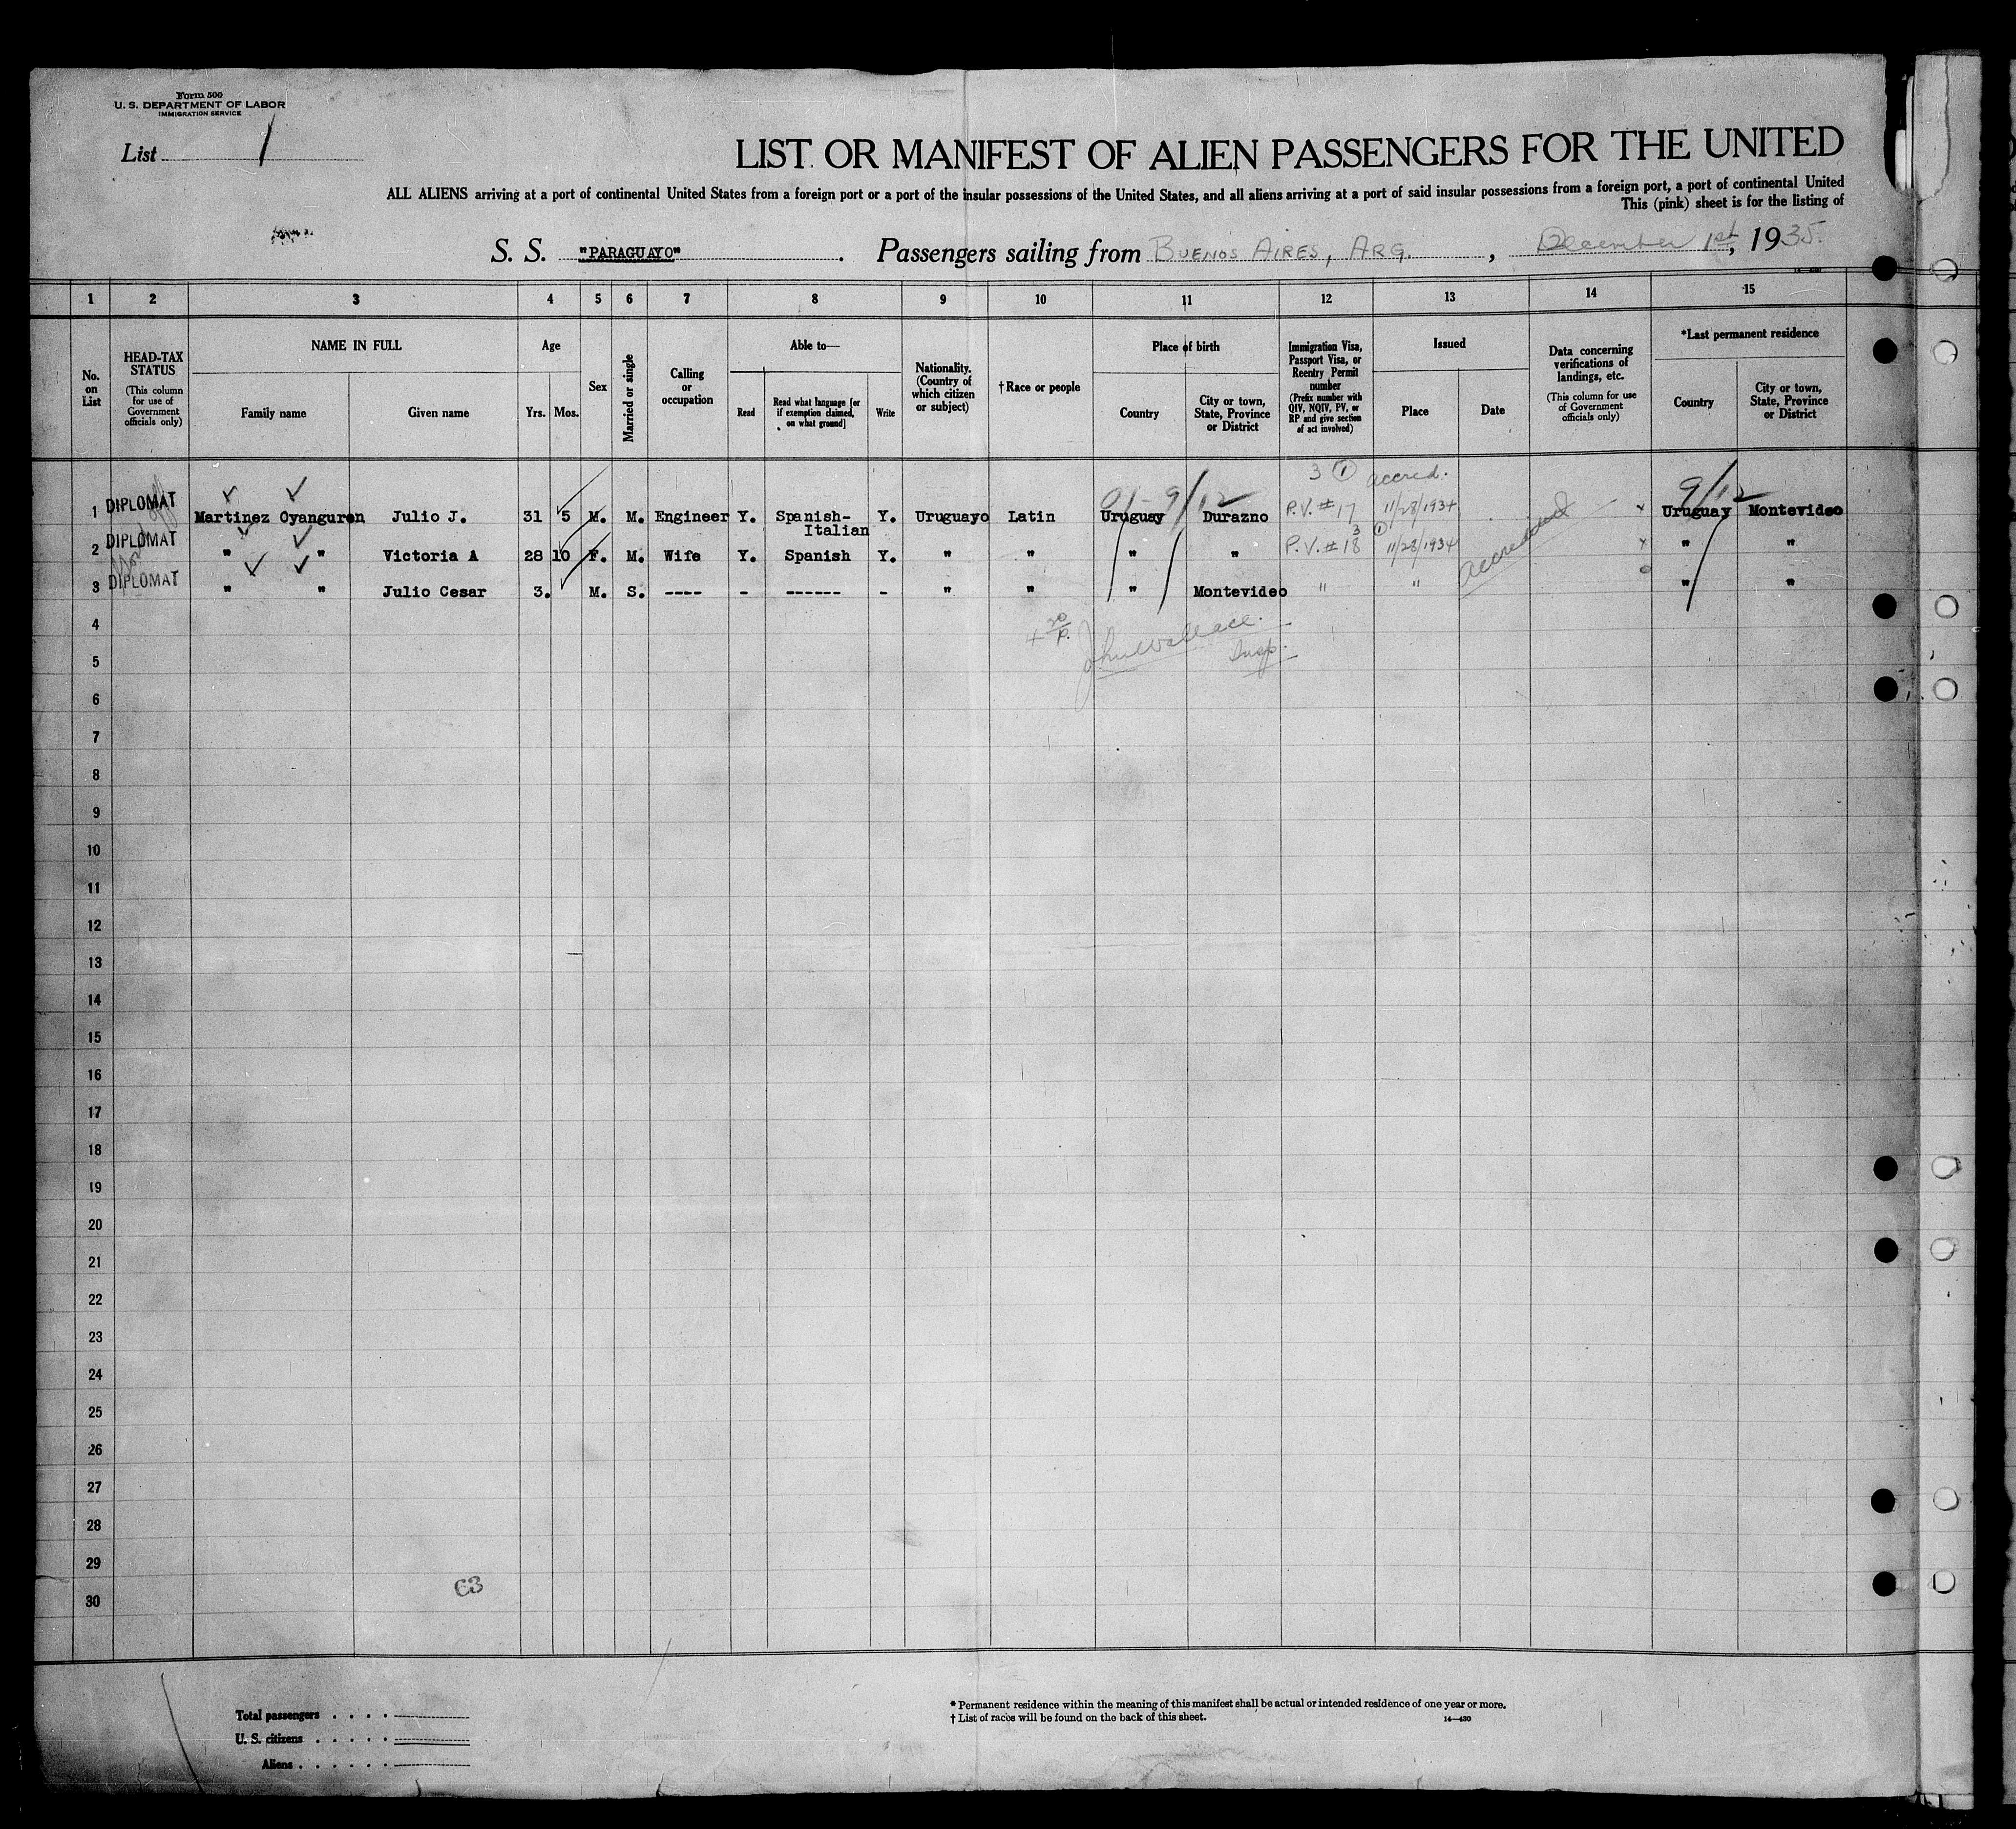 Form 500
U. S. DEPARTMENT OF LABOR
IMMIGRATION SERVICE
List 1
LIST OR MANIFEST OF ALIEN PASSENGERS FOR THE UNITED
ALL ALIENS arriving at a port of continental United States from a foreign port or a port of the insular possessions of the United States, and all aliens arriving at a port of said insular possessions from a foreign port, a port of continental United
This (pink) sheet is for the listing of
S. S. "PARAGUAYO". Passengers sailing from BUENOS AIRES, ARG., December 1st, 1935.
1 2 3 4 5 6 7 8 9 10 11 12 13 14 15
No. on List
HEAD-TAX STATUS
(This column for use of Government officials only)
NAME IN FULL
Family name
Given name
Age
Yrs. Mos.
Sex
Married or single
Calling or occupation
Able to—
Read
Read what language [or if exemption claimed, on what ground]
Write
Nationality. (Country of which citizen or subject)
†Race or people
Place of birth
Country
City or town, State, Province or District
Immigration Visa, Passport Visa, or Reentry Permit number
(Prefix number with QIV, NQIV, PV, or RP and give section of act involved)
Issued
Place
Date
Data concerning verifications of landings, etc.
(This column for use of Government officials only)
*Last permanent residence
Country
City or town, State, Province or District
3 1 accred.
9/12 9/12
1 DIPLOMAT Martinez Oyanguren Julio J. 31 5 M. M. Engineer Y. Spanish-Italian Y. Uruguayo Latin Uruguay Durazno P.V. #17 11/28/1934 Uruguay Montevideo
3 1
2 DIPLOMAT " " Victoria A 28 10 F. M. Wife Y. Spanish Y. " " " " P.V. #18 11/28/1934 Accredited " "
3 DIPLOMAT " " Julio Cesar 3. M. S. ---- - ------ - " " " Montevideo " " " "
4
4 30 P. John Wallace.
Insp.
5
6
7
8
9
10
11
12
13
14
15
16
17
18
19
20
21
22
23
24
25
26
27
28
29
30
63
Total passengers
U. S. citizens
Aliens
* Permanent residence within the meaning of this manifest shall be actual or intended residence of one year or more.
† List of races will be found on the back of this sheet.
14—430